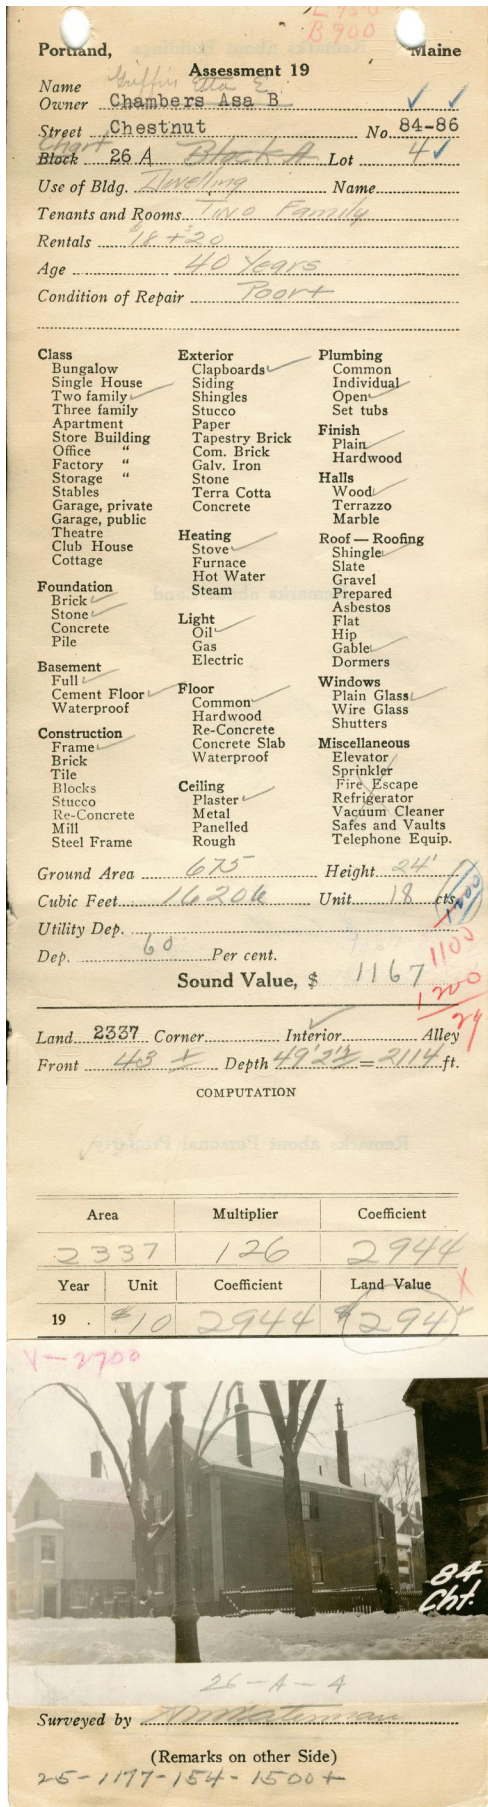 L 950
B 900
Portland, Maine
Assessment 19
Name Griffin Etta E.
Owner Chambers Asa B
Street Chestnut No. 84-86
Chart
Block 26 A Block A Lot 4
Use of Bldg. Dwelling Name
Tenants and Rooms Two Family
Rentals $18 + $20
Age 40 Years
Condition of Repair Poor+
Class
Bungalow
Single House
Two family
Three family
Apartment
Store Building
Office "
Factory "
Storage "
Stables
Garage, private
Garage, public
Theatre
Club House
Cottage
Foundation
Brick
Stone
Concrete
Pile
Basement
Full
Cement Floor
Waterproof
Construction
Frame
Brick
Tile
Blocks
Stucco
Re-Concrete
Mill
Steel Frame
Exterior
Clapboards
Siding
Shingles
Stucco
Paper
Tapestry Brick
Com. Brick
Galv. Iron
Stone
Terra Cotta
Concrete
Heating
Stove
Furnace
Hot Water
Steam
Light
Oil
Gas
Electric
Floor
Common
Hardwood
Re-Concrete
Concrete Slab
Waterproof
Ceiling
Plaster
Metal
Panelled
Rough
Plumbing
Common
Individual
Open
Set tubs
Finish
Plain
Hardwood
Halls
Wood
Terrazzo
Marble
Roof — Roofing
Shingle
Slate
Gravel
Prepared
Asbestos
Flat
Hip
Gable
Dormers
Windows
Plain Glass
Wire Glass
Shutters
Miscellaneous
Elevator
Sprinkler
Fire Escape
Refrigerator
Vacuum Cleaner
Safes and Vaults
Telephone Equip.
Ground Area 675 Height 24'
Cubic Feet 16200 Unit 18 cts.
Utility Dep.
1100
Dep. 60 Per cent.
Sound Value, $ 1167
1200
24
Land 2337 Corner Interior Alley
Front 43 ± Depth 49'2½ = 2114 ft.
COMPUTATION
Area Multiplier Coefficient
2337 126 2944
Year Unit Coefficient Land Value
19 . $10 2944 $294
V-2700
84
Cht.
26-A-4
Surveyed by
(Remarks on other Side)
25-1177-154-1500+